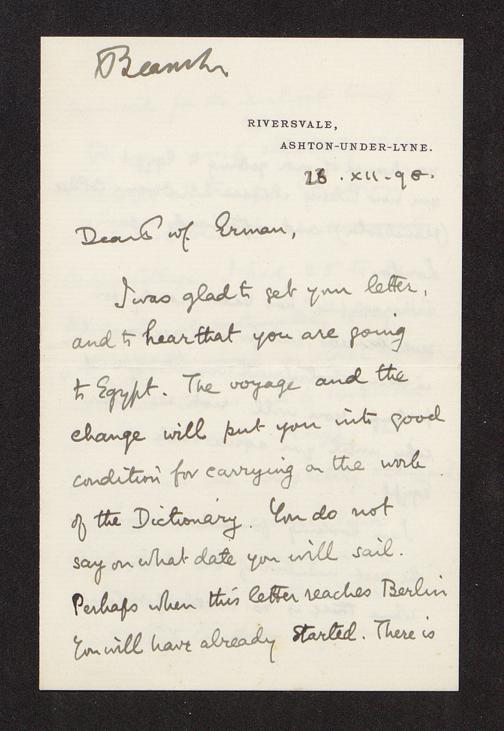 RIVERSVALE,
ASHTON-UNDER-LYNE.
.XII.98.
Dear Prof. Erman,
I was glad to get your letter,
and to hear that you are going
to Egypt. The voyage and the
change will put you into good
condition for carrying on the work
of the Dictionary. You do not
say on what date you will sail.
Perhaps when this letter reaches Berlin
you will have already started. There is